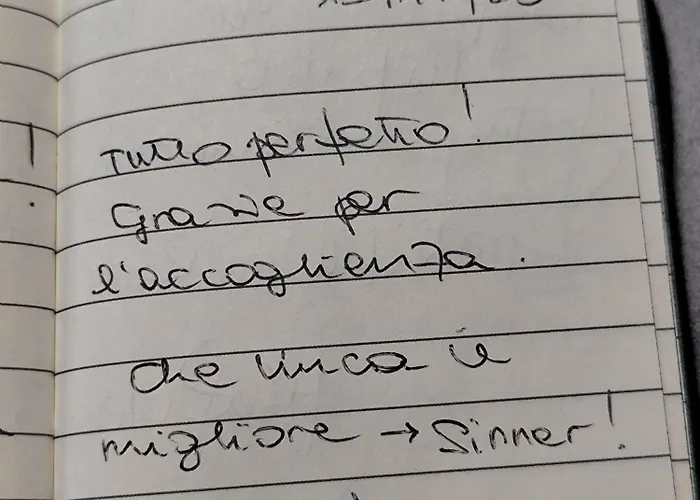 Tutto perfetto!
Grazie per
l'accoglienza.
che vinca il
migliore → Sinner!